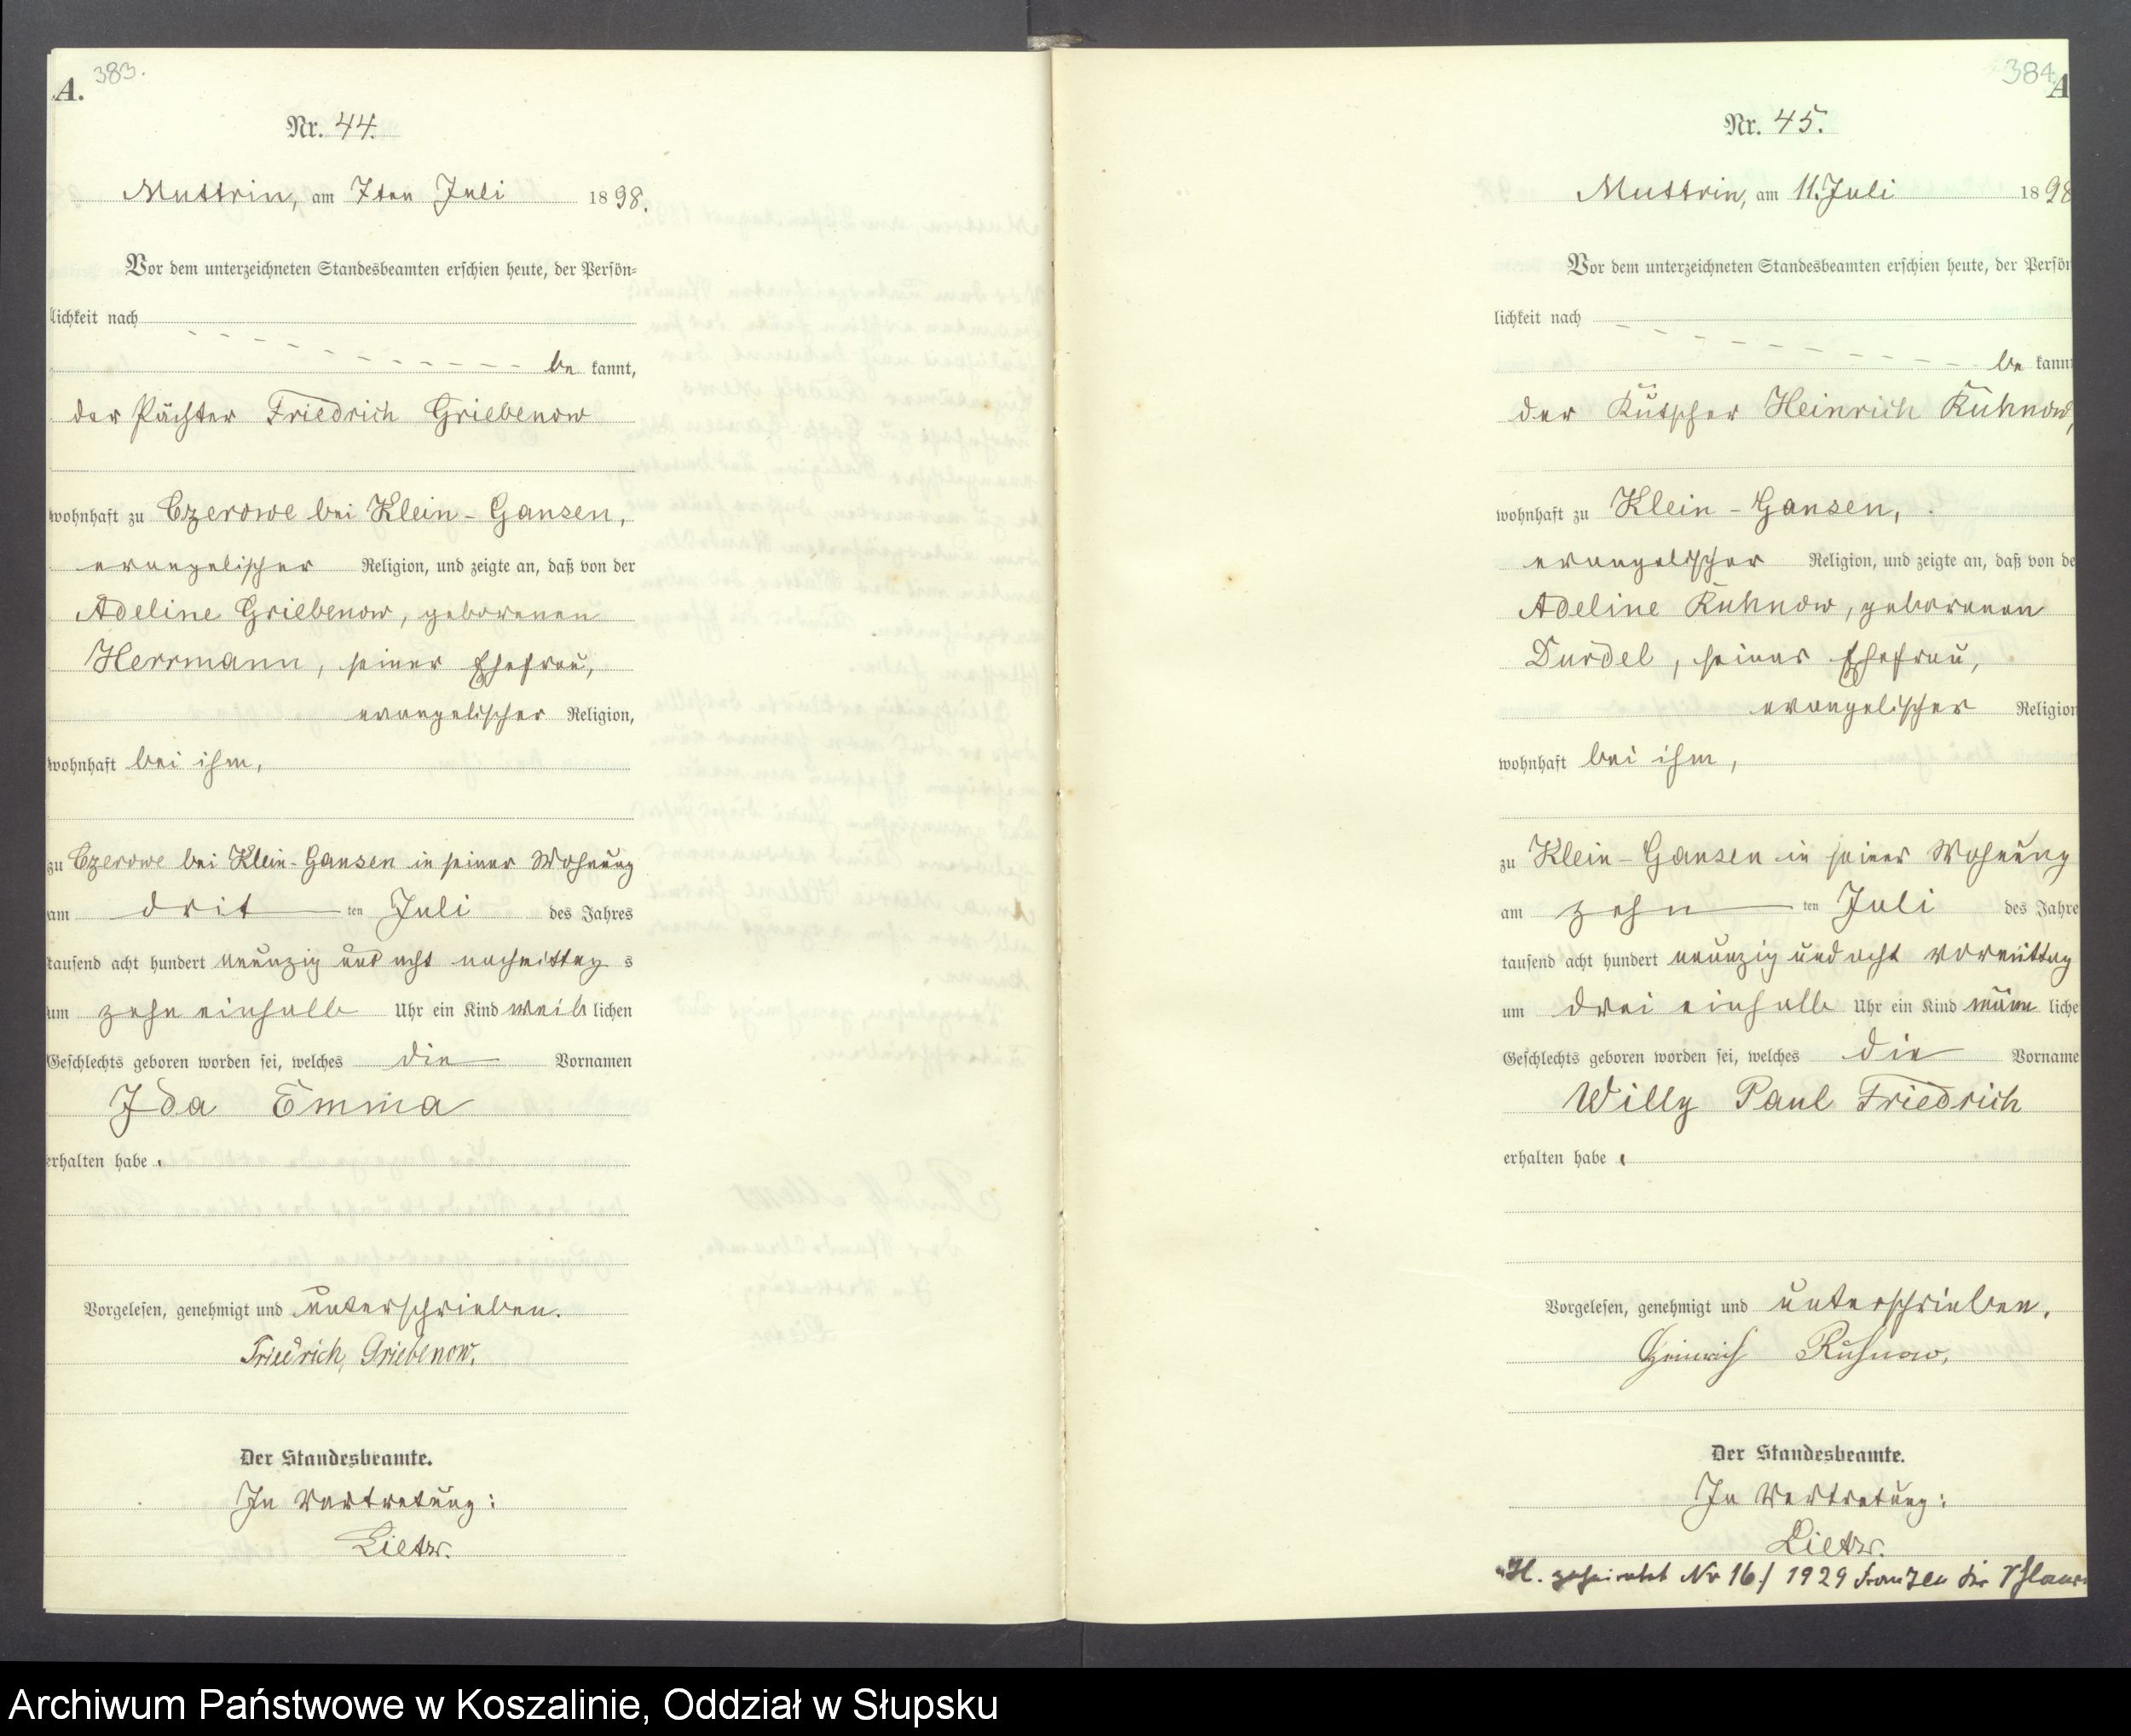 A. 383.
Nr. 44.
Muttrin, am 7ten Juli 1898.
Vor dem unterzeichneten Standesbeamten erschien heute, der Persön=
lichkeit nach
be kannt,
der Pächter Friedrich Griebenow
wohnhaft zu Czerowe bei Klein-Gansen,
evangelischer Religion, und zeigte an, daß von der
Adeline Griebenow, geborenen
Herrmann, seiner Ehefrau,
evangelischer Religion,
wohnhaft bei ihm,
zu Czerowe bei Klein-Gansen in seiner Wohnung
am drit ten Juli des Jahres
tausend acht hundert neunzig und acht nachmittag s
um zehn einhalb Uhr ein Kind weib lichen
Geschlechts geboren worden sei, welches die Vornamen
Ida Emma
erhalten habe.
Vorgelesen, genehmigt und unterschrieben.
Friedrich Griebenow.
Der Standesbeamte.
In Vertretung:
Lietz.
384 A
Nr. 45.
Muttrin, am 11. Juli 1898
Vor dem unterzeichneten Standesbeamten erschien heute, der Persön
lichkeit nach
be kannt
der Kutscher Heinrich Kuhnow,
wohnhaft zu Klein-Gansen,
evangelischer Religion, und zeigte an, daß von de
Adeline Kuhnow, geborenen
Durdel, seiner Ehefrau,
evangelischer Religion
wohnhaft bei ihm,
zu Klein-Gansen in seiner Wohnung
am zehn ten Juli des Jahre
tausend acht hundert neunzig und acht vormittag
um drei einhalb Uhr ein Kind männ liche
Geschlechts geboren worden sei, welches die Vorname
Willy Paul Friedrich
erhalten habe.
Vorgelesen, genehmigt und unterschrieben.
Heinrich Kuhnow.
Der Standesbeamte.
In Vertretung:
Lietz.
geheiratet Nr 16/1929
Archiwum Państwowe w Koszalinie, Oddział w Słupsku